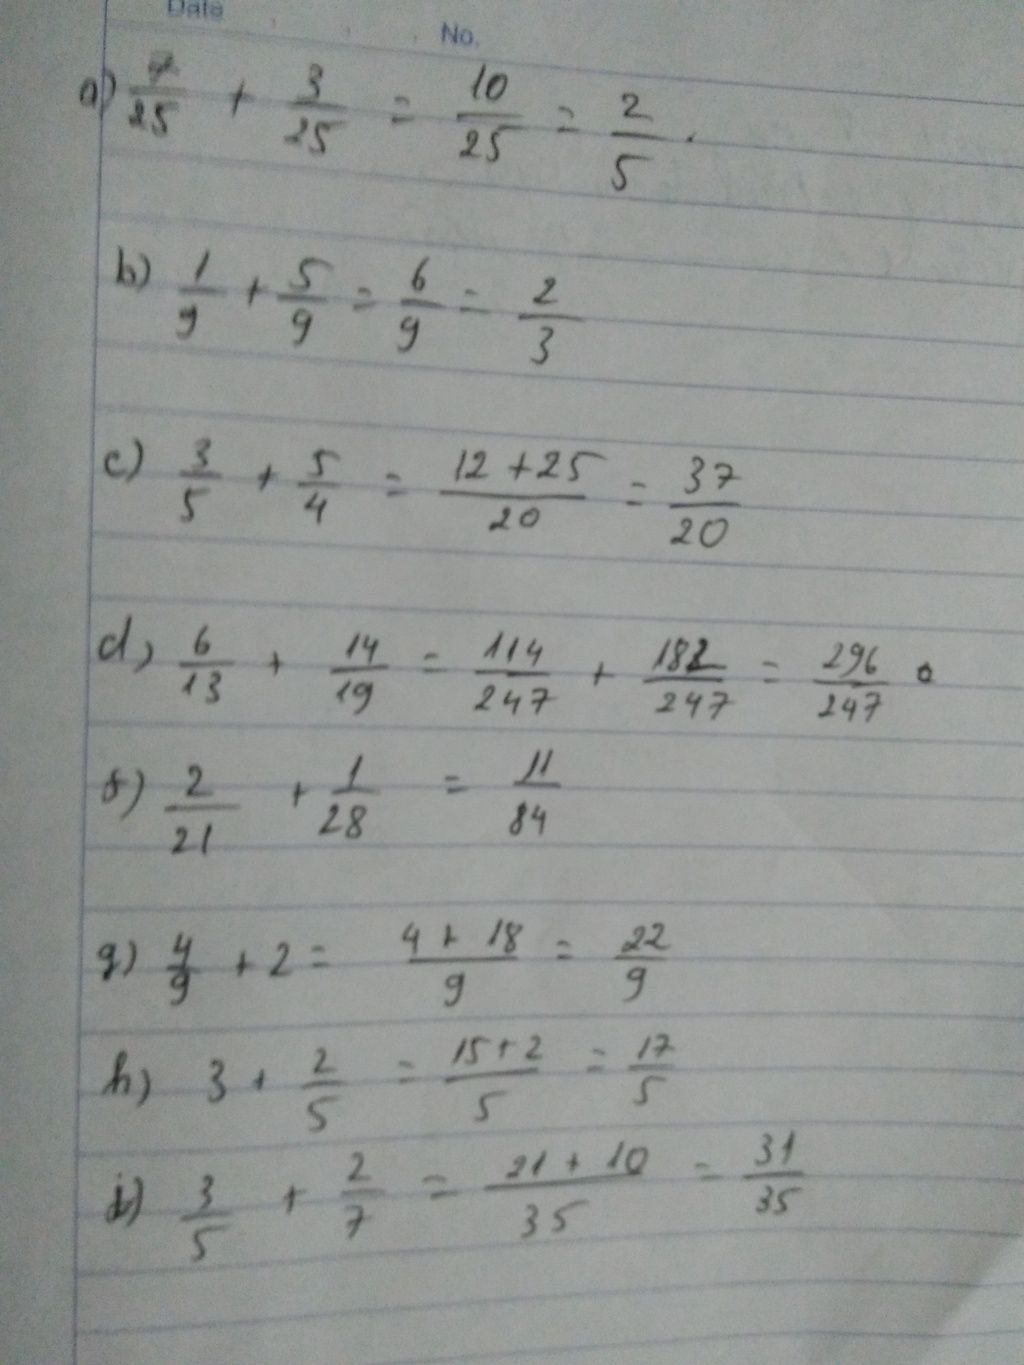 Date No.
a) 7/25 + 3/25 = 10/25 = 2/5.
b) 1/9 + 5/9 = 6/9 = 2/3
c) 3/5 + 5/4 = 12+25/20 = 37/20
d) 6/13 + 14/19 = 114/247 + 182/247 = 296/247
f) 2/21 + 1/28 = 11/84
g) 4/9 + 2 = 4+18/9 = 22/9
h) 3 + 2/5 = 15+2/5 = 17/5
i) 3/5 + 2/7 = 21+10/35 = 31/35